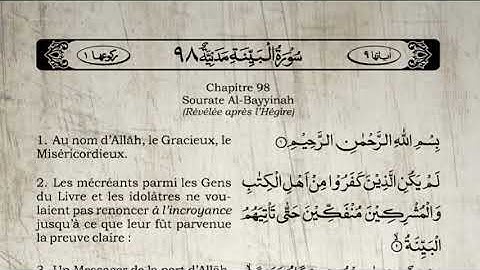 اٰیاتها ٩ سُوْرَةُ الْبَيِّنَةِ مَدَنِيَّةٌ ٩٨ رکوعها ١
Chapitre 98
Sourate Al-Bayyinah
(Révélée après l'Hégire)
1. Au nom d'Allāh, le Gracieux, le
Miséricordieux.
بِسْمِ اللّٰهِ الرَّحْمٰنِ الرَّحِيْمِ ۝١
2. Les mécréants parmi les Gens
du Livre et les idolâtres ne vou-
laient pas renoncer à l'incroyance
jusqu'à ce que leur fût parvenue
la preuve claire :
لَمْ يَكُنِ الَّذِيْنَ كَفَرُوْا مِنْ اَهْلِ الْكِتٰبِ
وَالْمُشْرِكِيْنَ مُنْفَكِّيْنَ حَتّٰى تَاْتِيَهُمُ
الْبَيِّنَةُ ۝٢
3. Un Messager de la part d'Allāh,